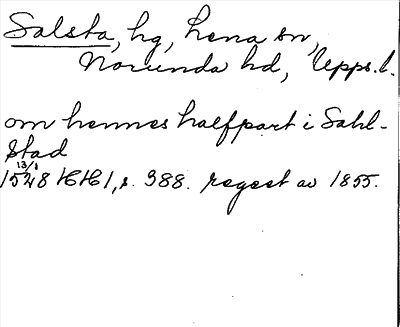 Salsta, hg, Lena sn,
Norunda hd, Upps. l.
om hennes halfpart i Sahl-
stad
13/1
1548 HH 1, s. 388. regest av 1855.